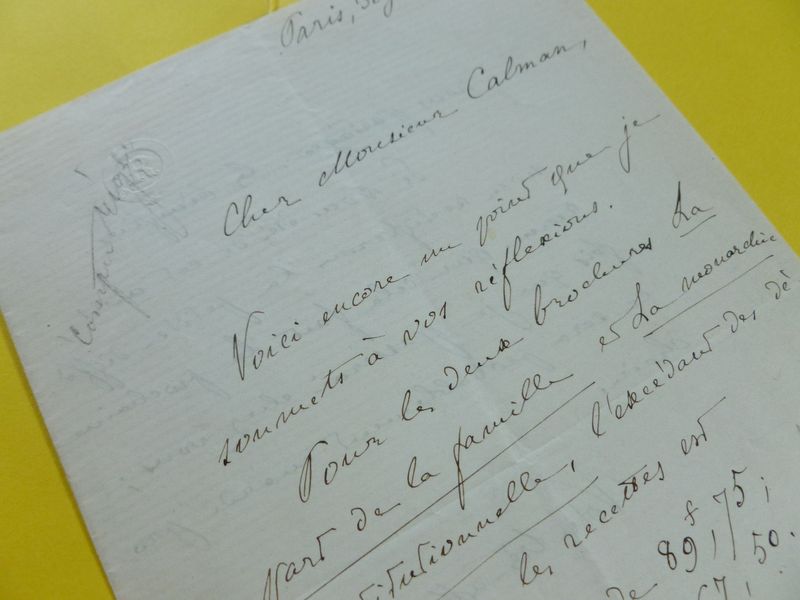 Paris,
Cher Monsieur Calman,
Voici encore un point que je
soumets à vos réflexions.
Pour les deux brochures La
Part de la famille et La monarchie
titutionnelle, l'excédant des dé
les recettes est
de 89 f 75;
67, 50.